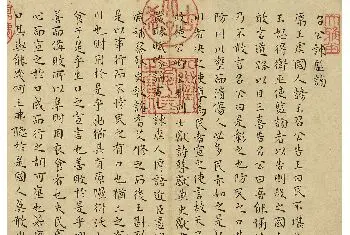 召公諫監謗
厲王虐國人謗王召公告王曰民不堪
王怒得衛巫使監謗者以告則殺之國
敢言道路以目王喜告召公曰吾能弭
乃不敢言召公曰是鄣之也防民之口
防川川壅而潰傷人必多民亦如之是
川者決之使導為民者宣之使言故天
士獻詩瞽獻典史獻
諫庶人傳語近臣盡
戚補察瞽史教誨耆艾修之而後王斟
是以事行而不悖民之有口也猶土之
川也財用於是乎出猶其有原隰衍沃
食于是乎生口之宣言也善敗於是乎
善而備敗所以阜財用衣食者也夫民
心而宣之於口成而行之胡可壅也若
口其與能幾何王弗聽於是國人莫敢出